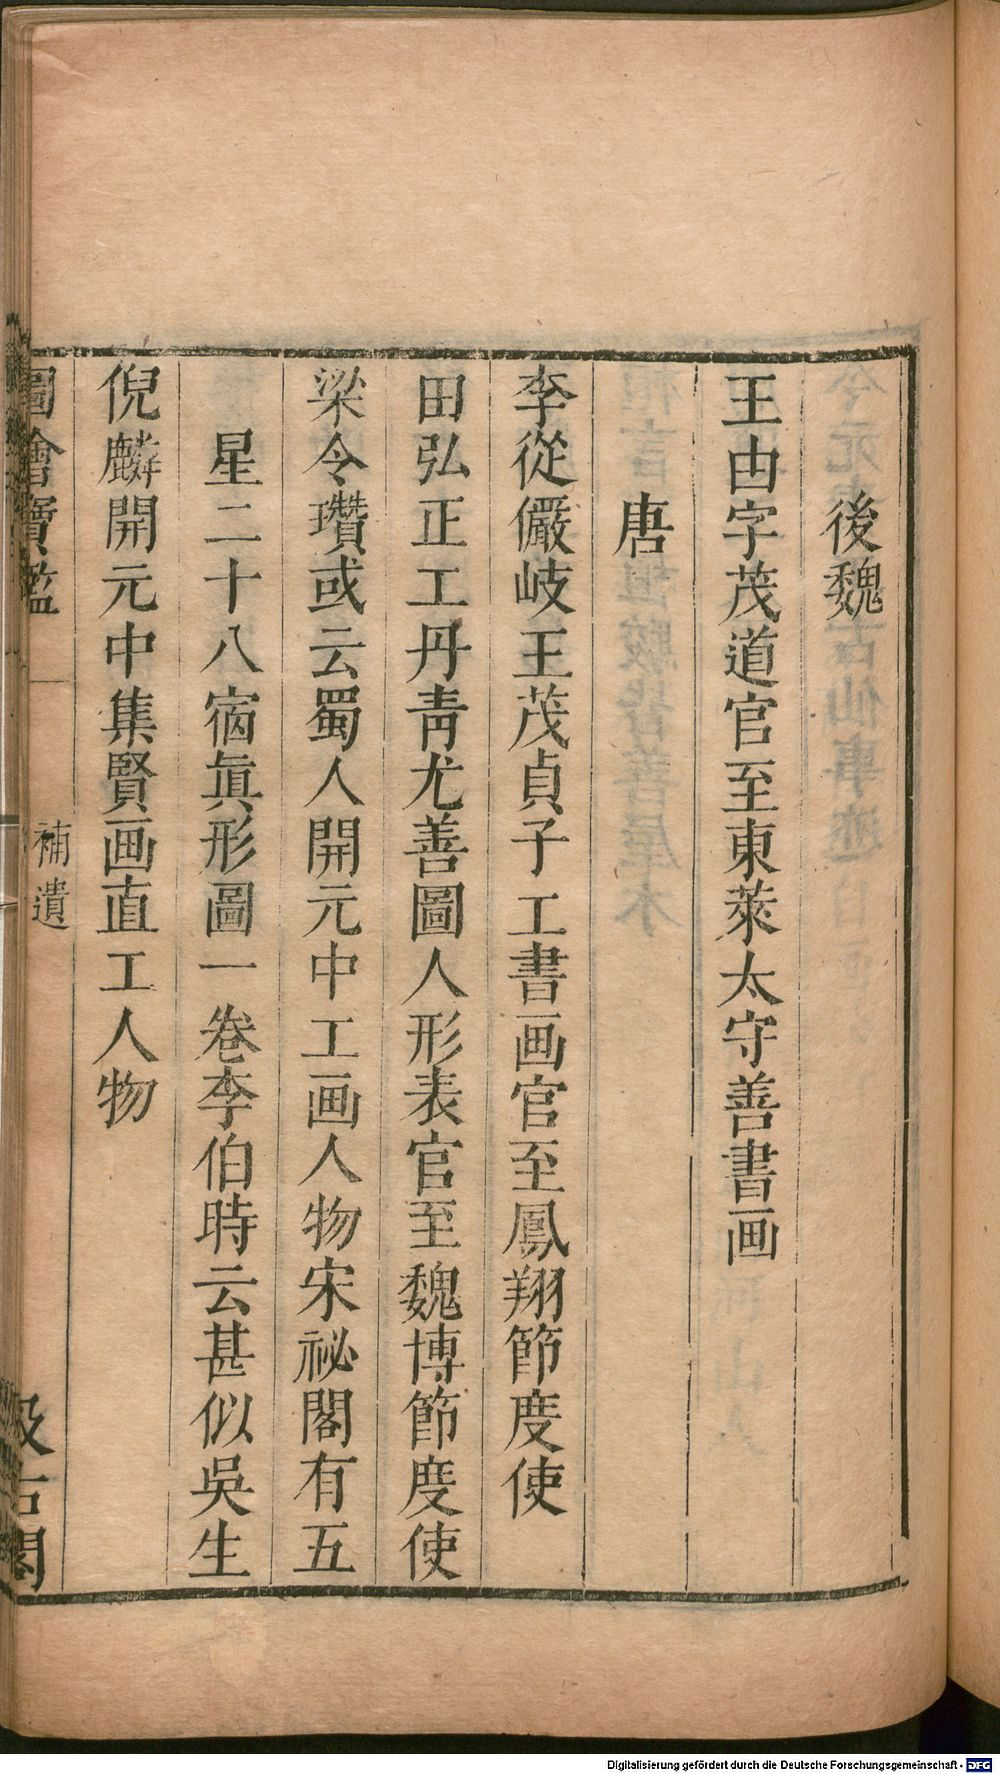 後魏
王由字茂道官至東萊太守善書画
唐
李從儼岐王茂貞子工書画官至鳳翔節度使
田弘正工丹靑尤善圖人形表官至魏博節度使
梁令瓚或云蜀人開元中工画人物宋祕閣有五
星二十八宿眞形圖一卷李伯時云甚似吳生
倪麟開元中集賢画直工人物
圖繪寶鑑
補遺
汲古閣
Digitalisierung gefördert durch die Deutsche Forschungsgemeinschaft - DFG